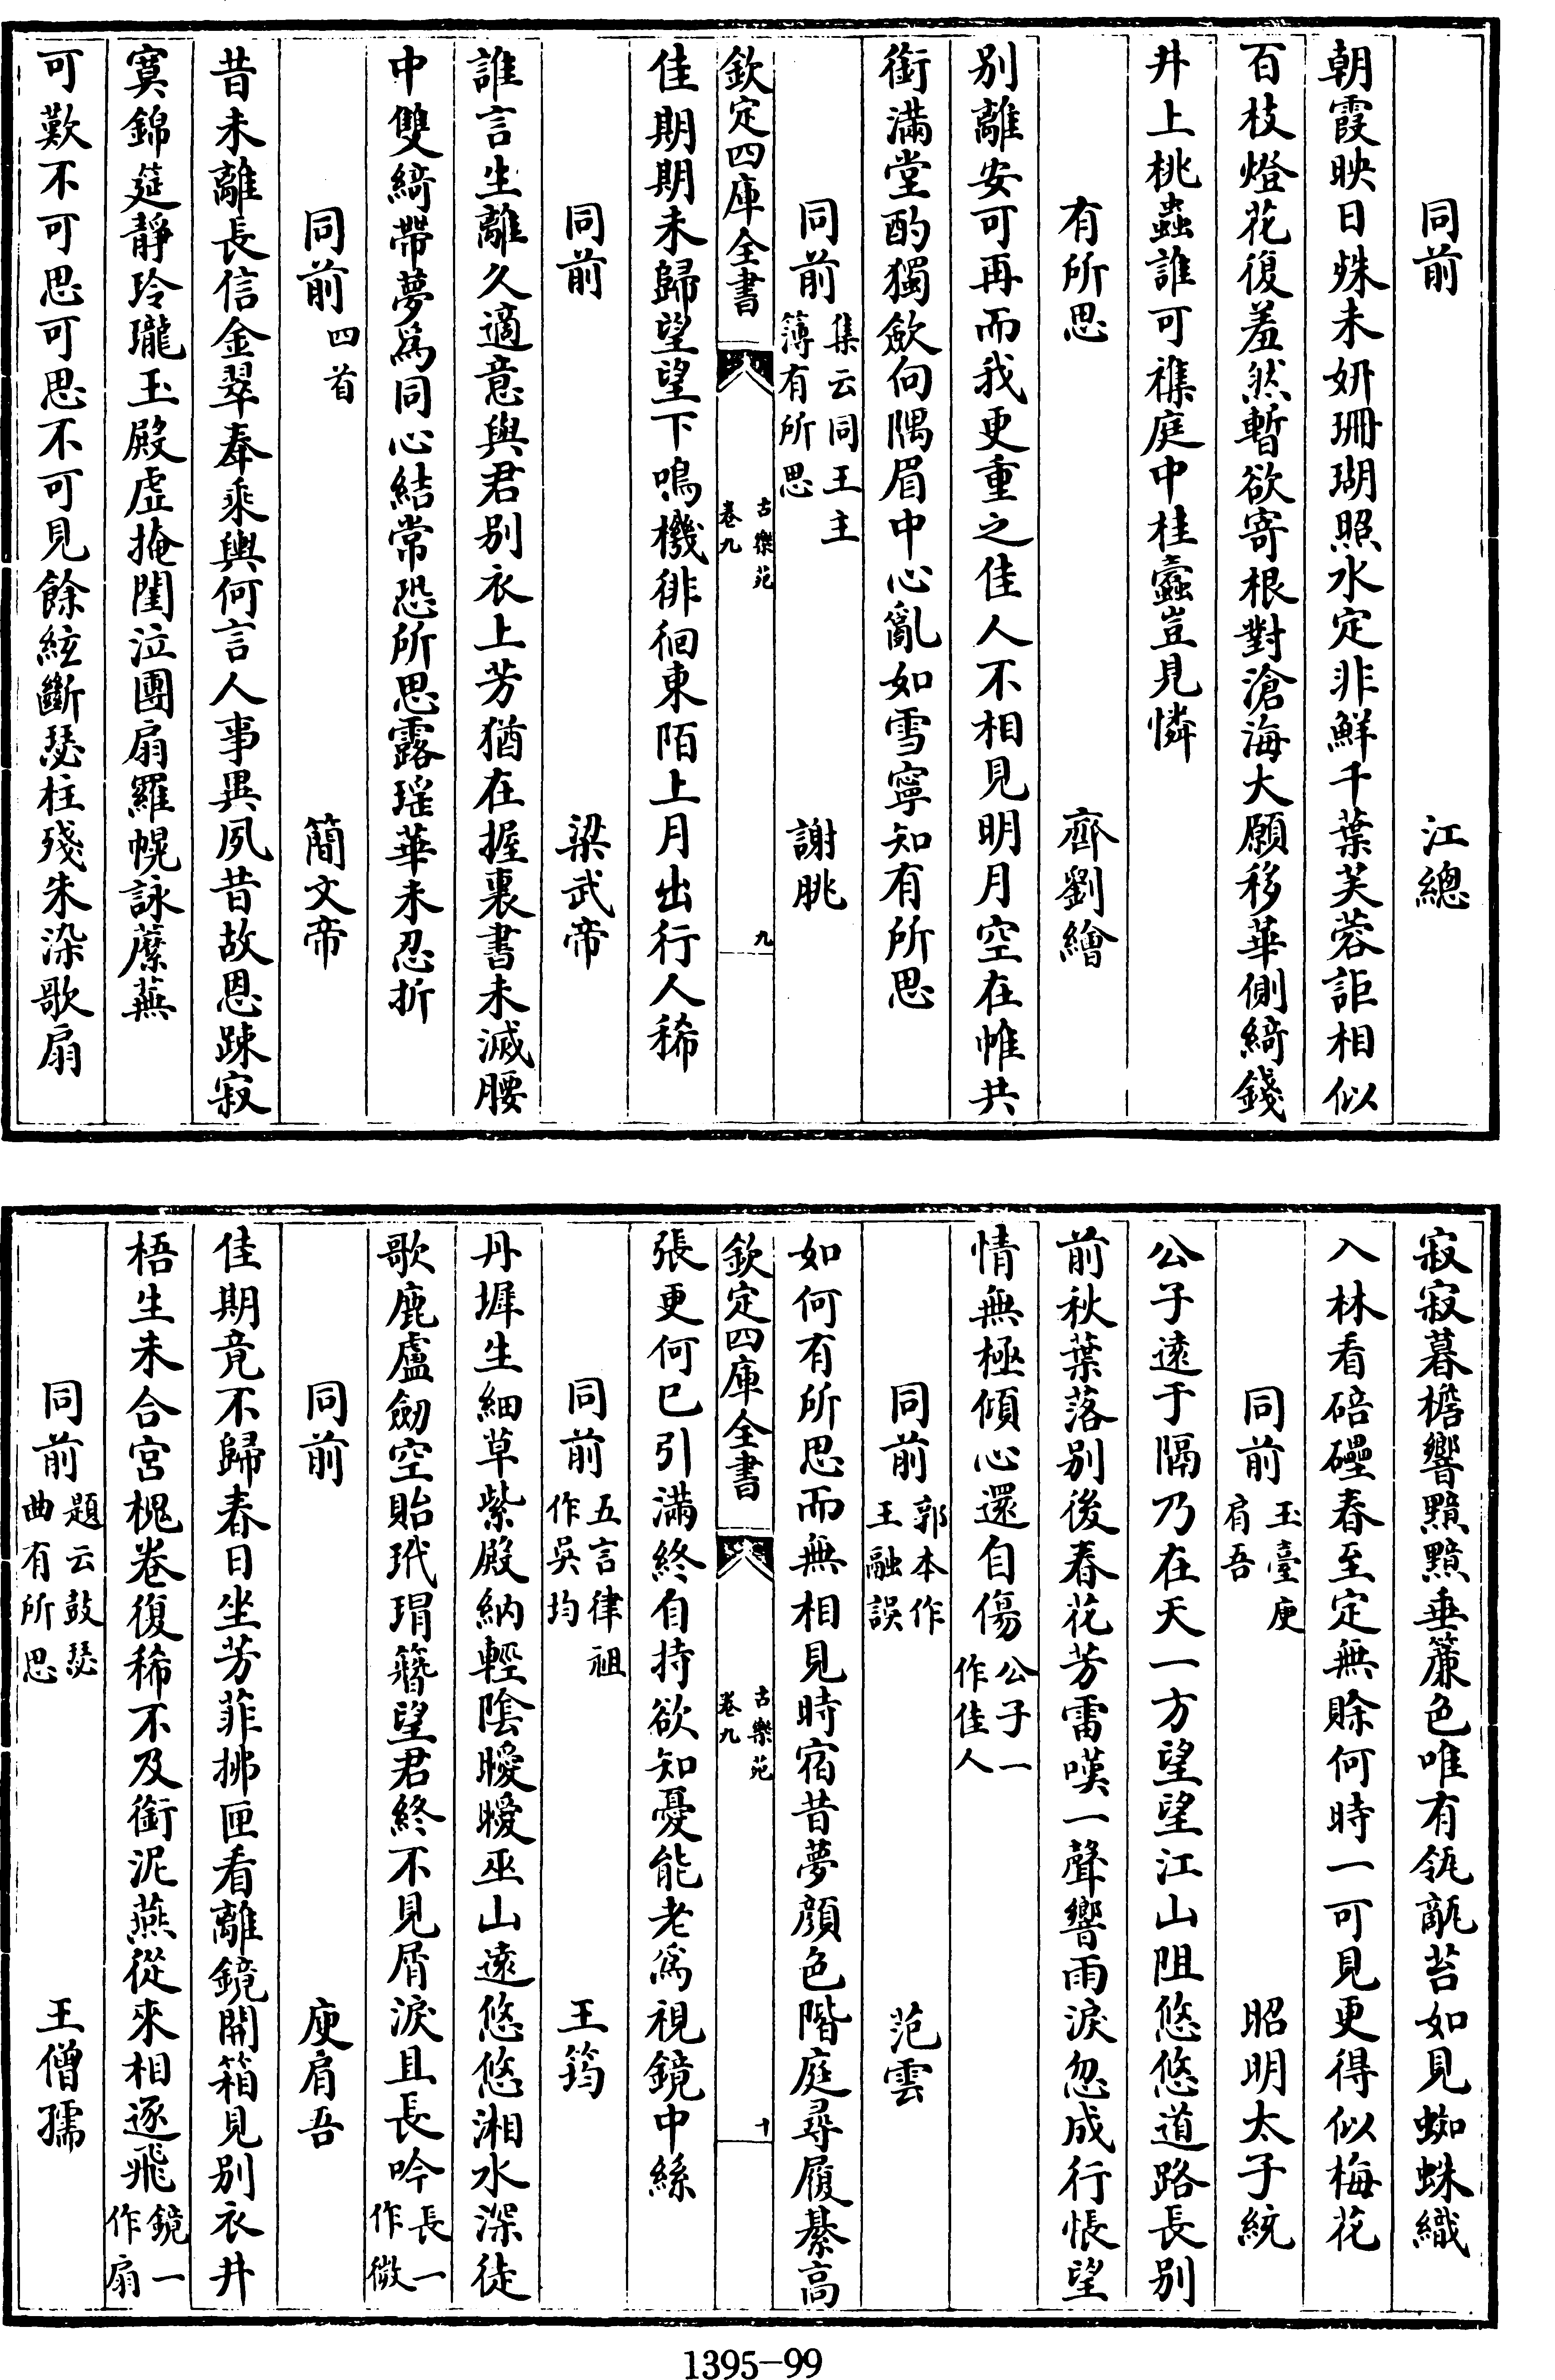 同前 江總
朝霞映日殊未妍珊瑚照水定非鮮千葉芙蓉詎相似
百枝燈花復羞然暫欲寄根對滄海大願移華側綺錢
井上桃蟲誰可襍庭中桂蠹豈見憐
有所思 齊劉繪
别離安可再而我更重之佳人不相見明月空在帷共
銜滿堂酌獨斂向隅眉中心亂如雪寧知有所思
同前 集云同王主簿有所思 謝朓
欽定四庫全書 古樂苑 卷九 九
佳期期未歸望望下鳴機徘徊東陌上月出行人稀
同前 梁武帝
誰言生離久適意與君别衣上芳猶在握裏書未滅腰
中雙綺帶夢爲同心結常恐所思露瑶華未忍折
同前 四首 簡文帝
昔未離長信金翠奉乘輿何言人事異夙昔故恩踈寂
寞錦筵靜玲瓏玉殿虚掩閨泣團扇羅幌詠蘼蕪
可歎不可思可思不可見餘絃斷瑟柱殘朱染歌扇
寂寂暮檐響黯黯垂簾色唯有瓴甋苔如見蜘蛛織
入林看碚礧春至定無賖何時一可見更得似梅花
同前 玉臺庾肩吾 昭明太子統
公子遠于隔乃在天一方望望江山阻悠悠道路長别
前秋葉落别後春花芳雷嘆一聲響雨淚忽成行悵望
情無極傾心還自傷 公子一作佳人
同前 郭本作王融誤 范雲
如何有所思而無相見時宿昔夢顔色階庭尋履綦高
欽定四庫全書 古樂苑 卷九 十
張更何已引滿終自持欲知憂能老爲視鏡中絲
同前 五言律祖作吳均 王筠
丹墀生細草紫殿納輕陰曖曖巫山遠悠悠湘水深徒
歌鹿盧劒空貽玳瑁簪望君終不見屑淚且長吟 長一作微
同前 庾肩吾
佳期竟不歸春日坐芳菲拂匣看離鏡開箱見别衣井
梧生未合宮槐卷復稀不及銜泥燕從來相逐飛 鏡一作扇
同前 題云鼓瑟曲有所思 王僧孺
1395-99